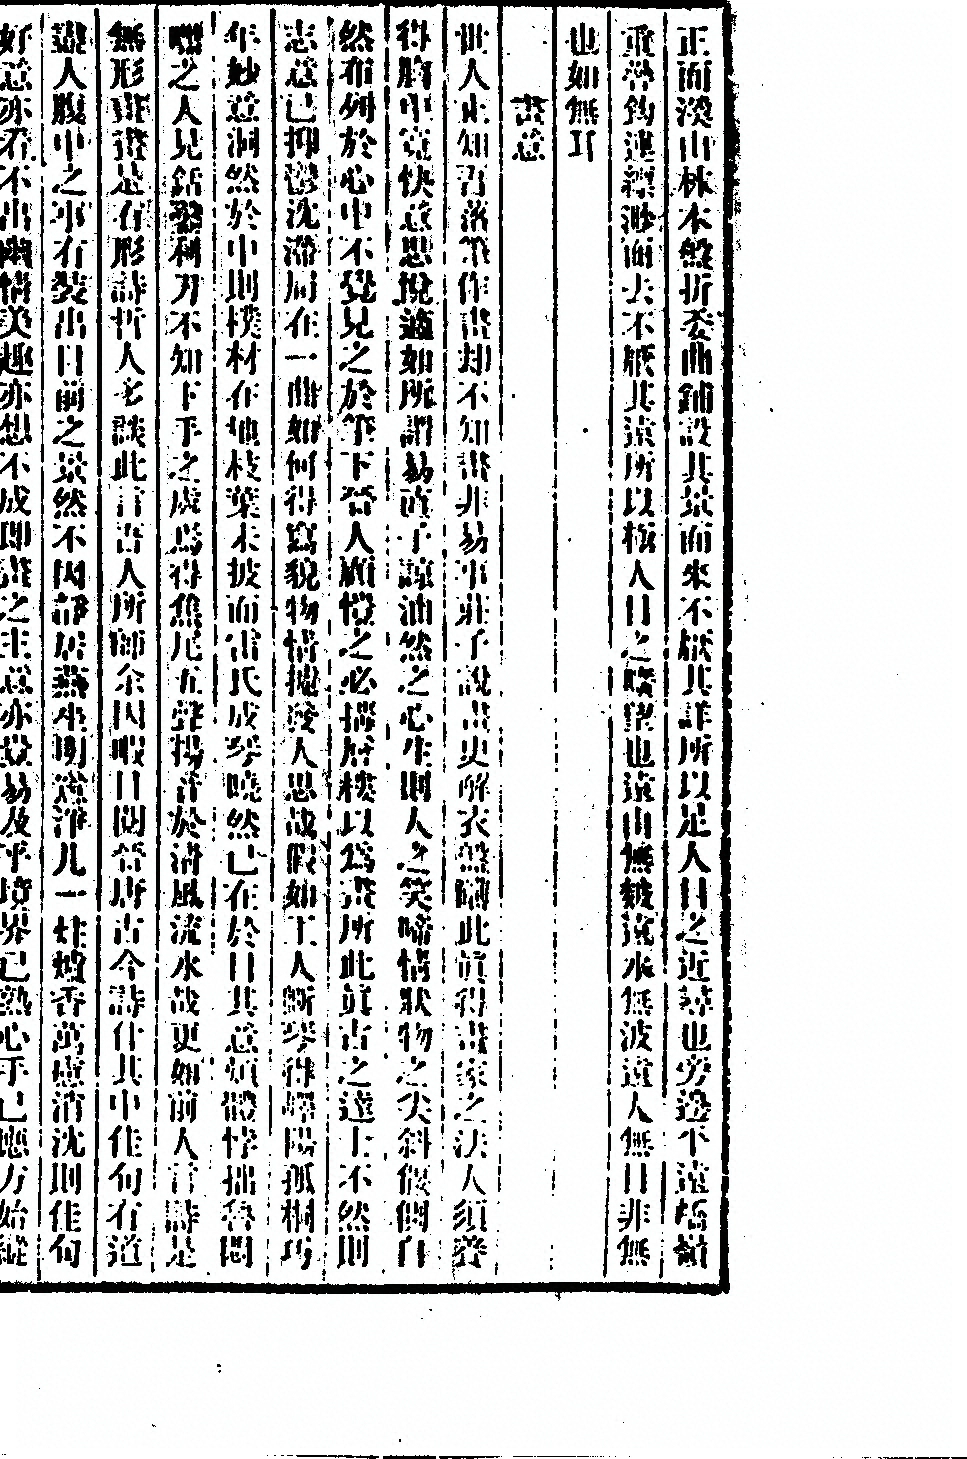 正面溪山林木盤折委曲鋪設其景而來不厭其詳所以足人目之近尋也旁邊平遠嶠嶺
重疊鈎連縹渺而去不厭其遠所以極人目之曠望也遠山無皴遠水無波遠人無目非無
也如無耳
畫意
世人止知吾落筆作畫却不知畫非易事莊子說畫史解衣盤礴此眞得畫家之法人須養
得胸中寬快意思悅適如所謂易直子諒油然之心生則人之笑啼情狀物之尖斜偃側自
然布列於心中不覺見之於筆下晉人顧愷之必搆層樓以爲畫所此眞古之達士不然則
志意已抑鬱沈滯局在一曲如何得寫貌物情攄發人思哉假如工人斵琴得嶧陽孤桐巧
手妙意洞然於中則樸材在地枝葉未披而雷氏成琴曉然已在於目其意煩體悖拙魯悶
嘿之人見銛鑿利刀不知下手之處焉得焦尾五聲揚音於清風流水哉更如前人言詩是
無形畫畫是有形詩哲人多談此言吾人所師余因暇日閱晉唐古今詩什其中佳句有道
盡人腹中之事有裝出目前之景然不因靜居燕坐明窓淨几一炷爐香萬慮消沈則佳句
好意亦看不出幽情美趣亦想不成即畫之主意亦豈易及乎境界已熟心手已應方始縱